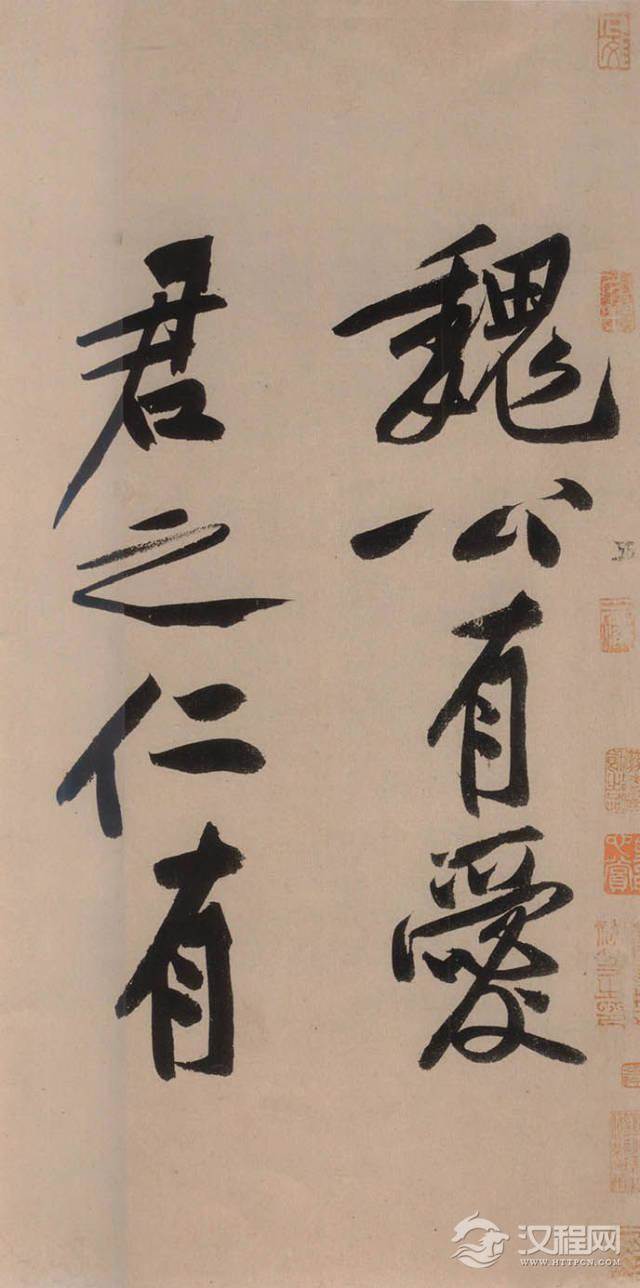 魏公有愛
君之仁有
汉程网
WWW.HTTPCN.COM